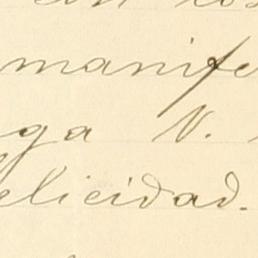 manife
ga V.
felicidad.